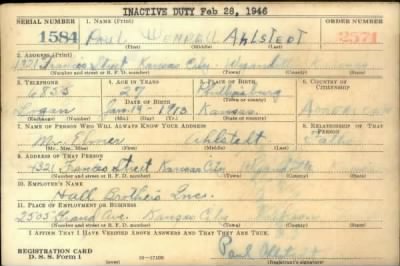 INACTIVE DUTY Feb 28, 1946
SERIAL NUMBER 1. NAME (Print) ORDER NUMBER
1584 Paul Wendell Ahlstedt 2571
(First) (Middle) (Last)
2. ADDRESS (Print)
1321 Frances Street Kansas City, Wyandotte Kansas
(Number and street or R. F. D. number) (Town) (County) (State)
3. TELEPHONE 4. AGE IN YEARS 5. PLACE OF BIRTH 6. COUNTRY OF CITIZENSHIP
27 Phillipsburg
DATE OF BIRTH
Logan Jan 14 - 1913 Kansas. American
(Exchange) (Number) (Mo.) (Day) (Yr.) (State or country)
7. NAME OF PERSON WHO WILL ALWAYS KNOW YOUR ADDRESS 8. RELATIONSHIP OF THAT PERSON
Mr. Elmer Ahlstedt Father
(Mr., Mrs., Miss) (First) (Middle) (Last)
9. ADDRESS OF THAT PERSON
1321 Frances Street Kansas City
(Number and street or R. F. D. number) (Town) (County) (State)
10. EMPLOYER'S NAME
Hall Brothers Inc.
11. PLACE OF EMPLOYMENT OR BUSINESS
2505 Grand Ave. Kansas City
(Number and street or R. F. D. number) (Town) (County) (State)
I AFFIRM THAT I HAVE VERIFIED ABOVE ANSWERS AND THAT THEY ARE TRUE.
REGISTRATION CARD
D. S. S. Form 1 Paul
(Registrant's signature)